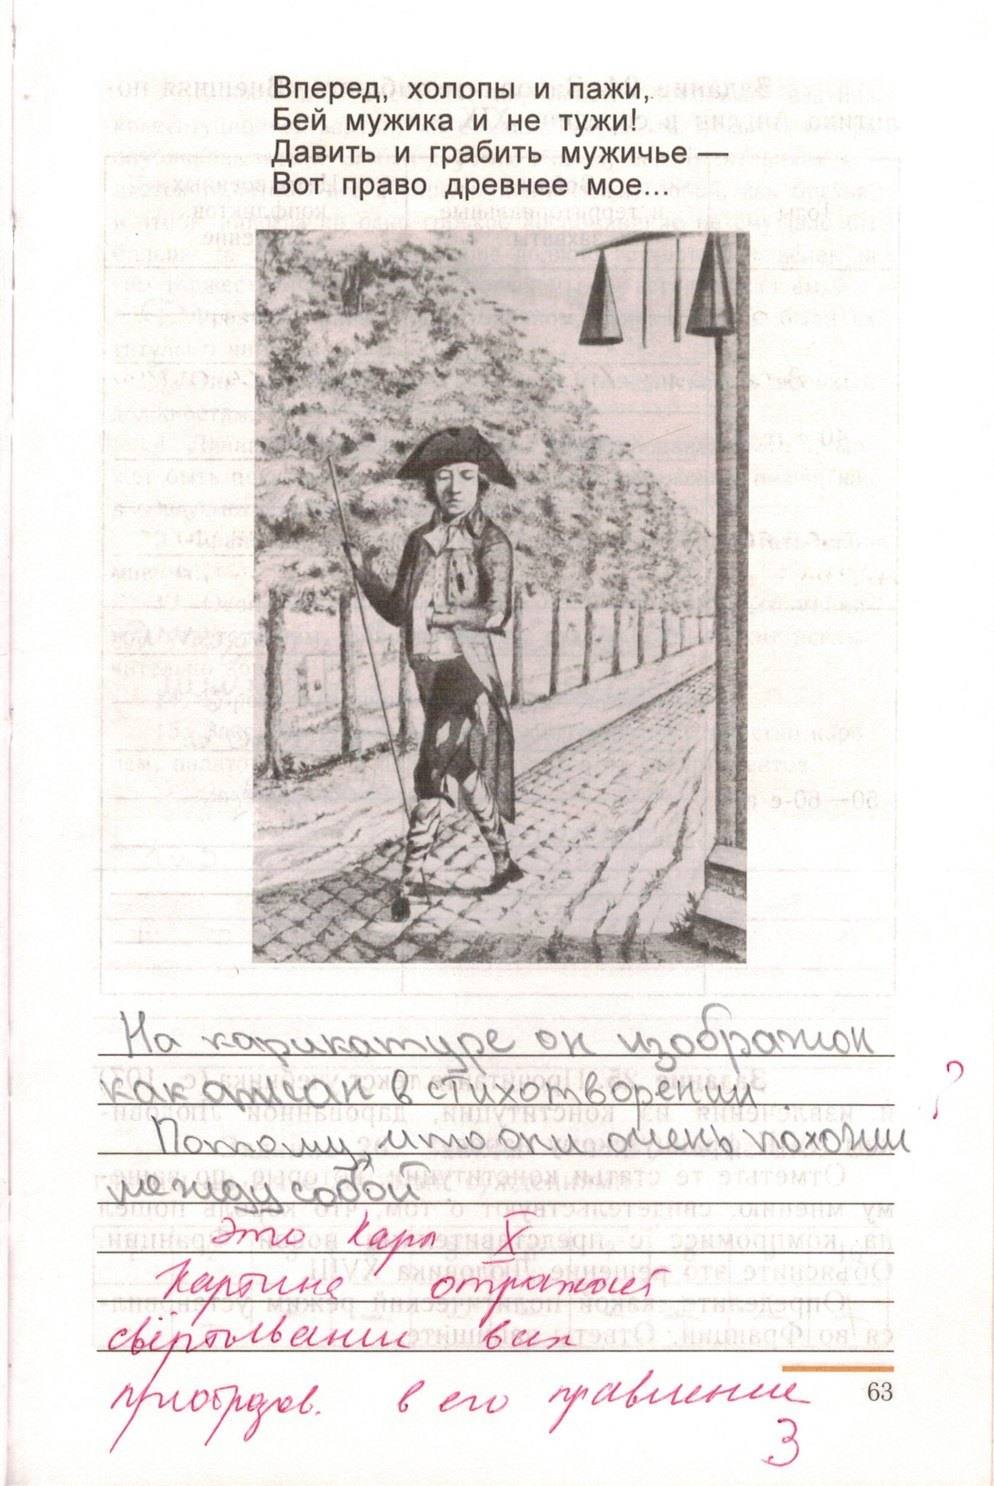 Вперед, холопы и пажи,
Бей мужика и не тужи!
Давить и грабить мужичье —
Вот право древнее мое...
На карикатуре он изображон
как описан в стихотворении
?
Потому, что они очень похожи
между собой.
Это Карл X
Картина отражает
свёртывание всех
преобразов. в его правление
63
3